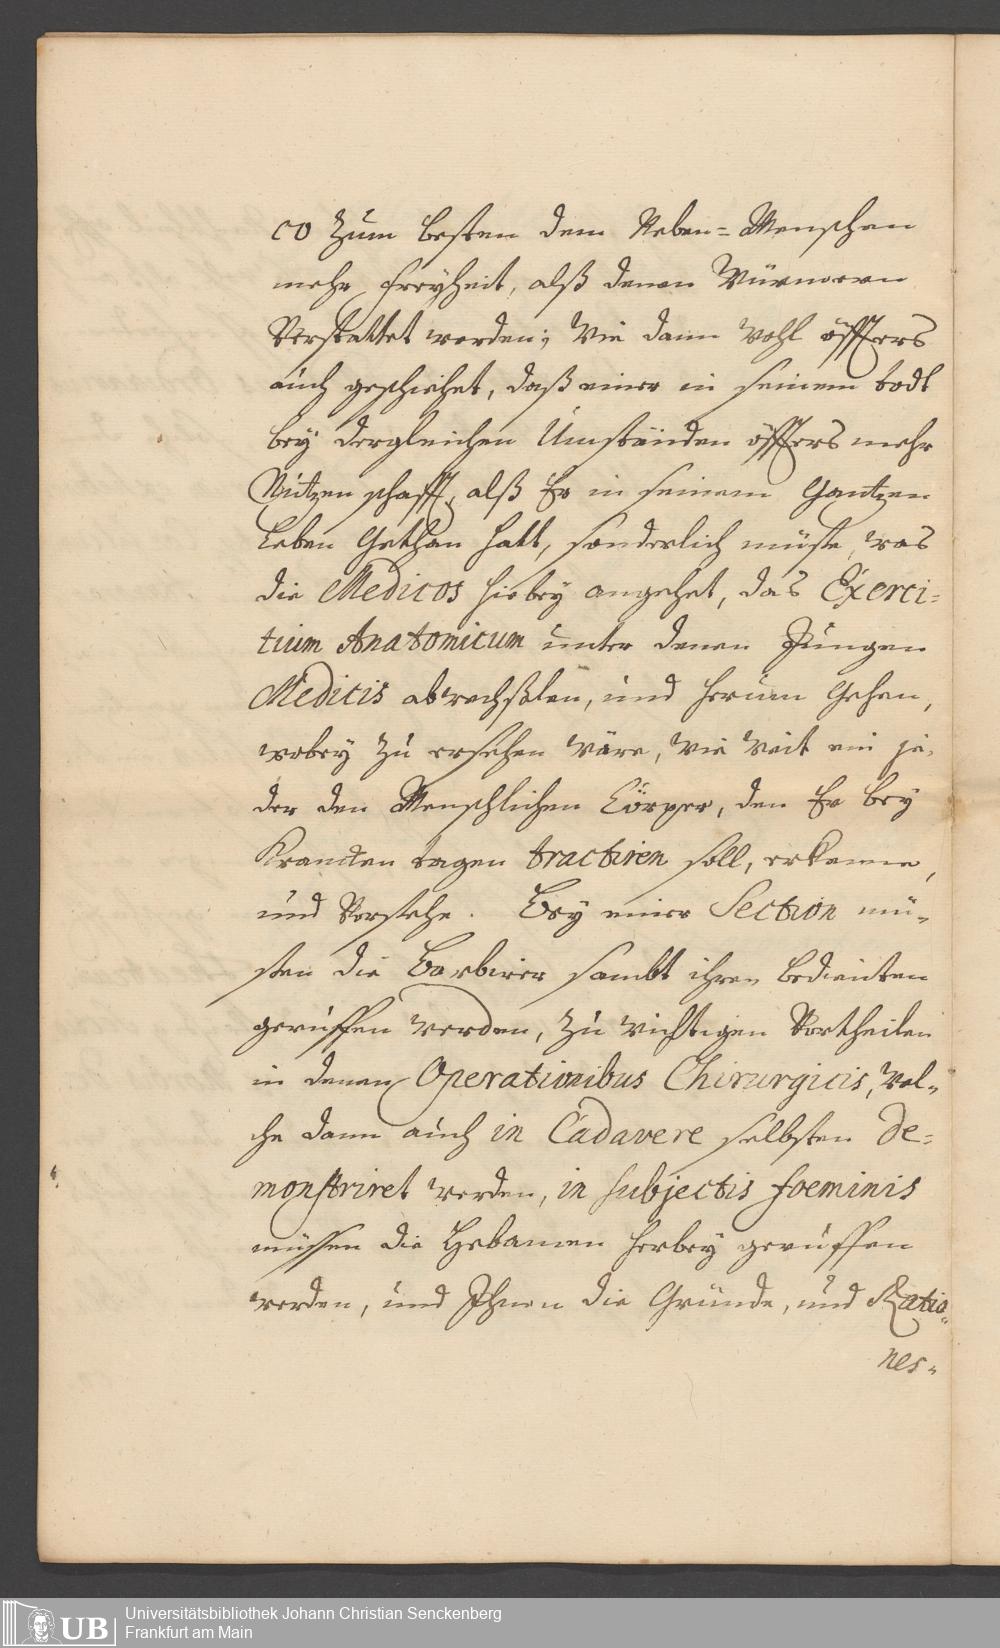 co zum besten dem Neben=Menschen
mehr freyheit, alß denen Würmeren
Verstattet werden; Wie dann Wohl öffters
auch geschiehet, daß einer in seinem todt
bey dergleichen Umständen öffters mehr
Nutzen schafft, alß Er in seinem Gantzen
Leben Gethan hatt, sonderlich müste, was
die Medicos hiebey angehet, das Exerci=
tium Anatomicum unter denen Jungen
Medicis abwechßlen, und herum Gehen,
wobey zu ersehen wäre, wie weit ein je=
der den Menschlichen Cörper, den Er bey
Krancken tagen tractiren soll, erkenne,
und Verstehe. Bey einer Section mü=
sten die Barbirer sambt ihren bedienten
geruffen werden, zu wichtigen Vortheilen
in denen Operationibus Chirurgicis, Wel=
che dann auch in Cadavere selbsten de=
monstriret werden, in subjectis foeminis
müssen die Hebamen herbey geruffen
werden, und Ihnen die Gründe, und Ratio=
nes=
UB Universitätsbibliothek Johann Christian Senckenberg
Frankfurt am Main